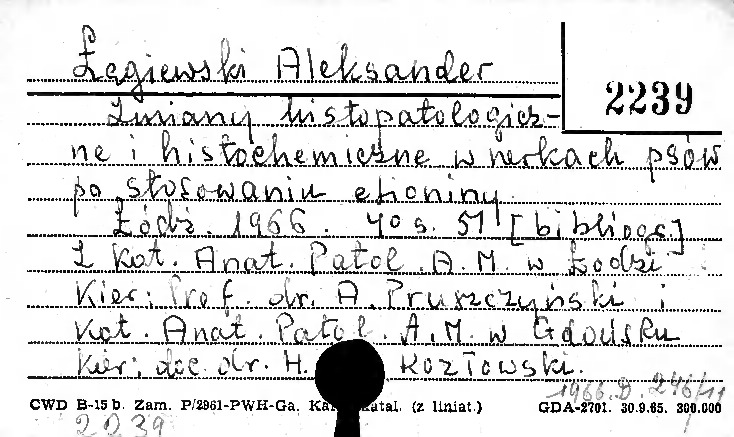 Łągiewski Aleksander
2239
Zmiany histopatologicz-
ne i histochemiczne w nerkach psów
po stosowaniu etioniny.
Łódź. 1966. 40 s. 51 [bibliogr.]
Z Kat. Anat. Patol. A.M. w Łodzi
Kier: Prof. dr. A. Pruszczyński i
Kat. Anat. Patol. A.M. w Gdańsku
Kier: doc. dr. H. Kozłowski.
1966.D. 246/11
CWD B-15 b. Zam. P/2961-PWH-Ga. (z liniat.) GDA-2701. 30.9.65. 300.000
2239